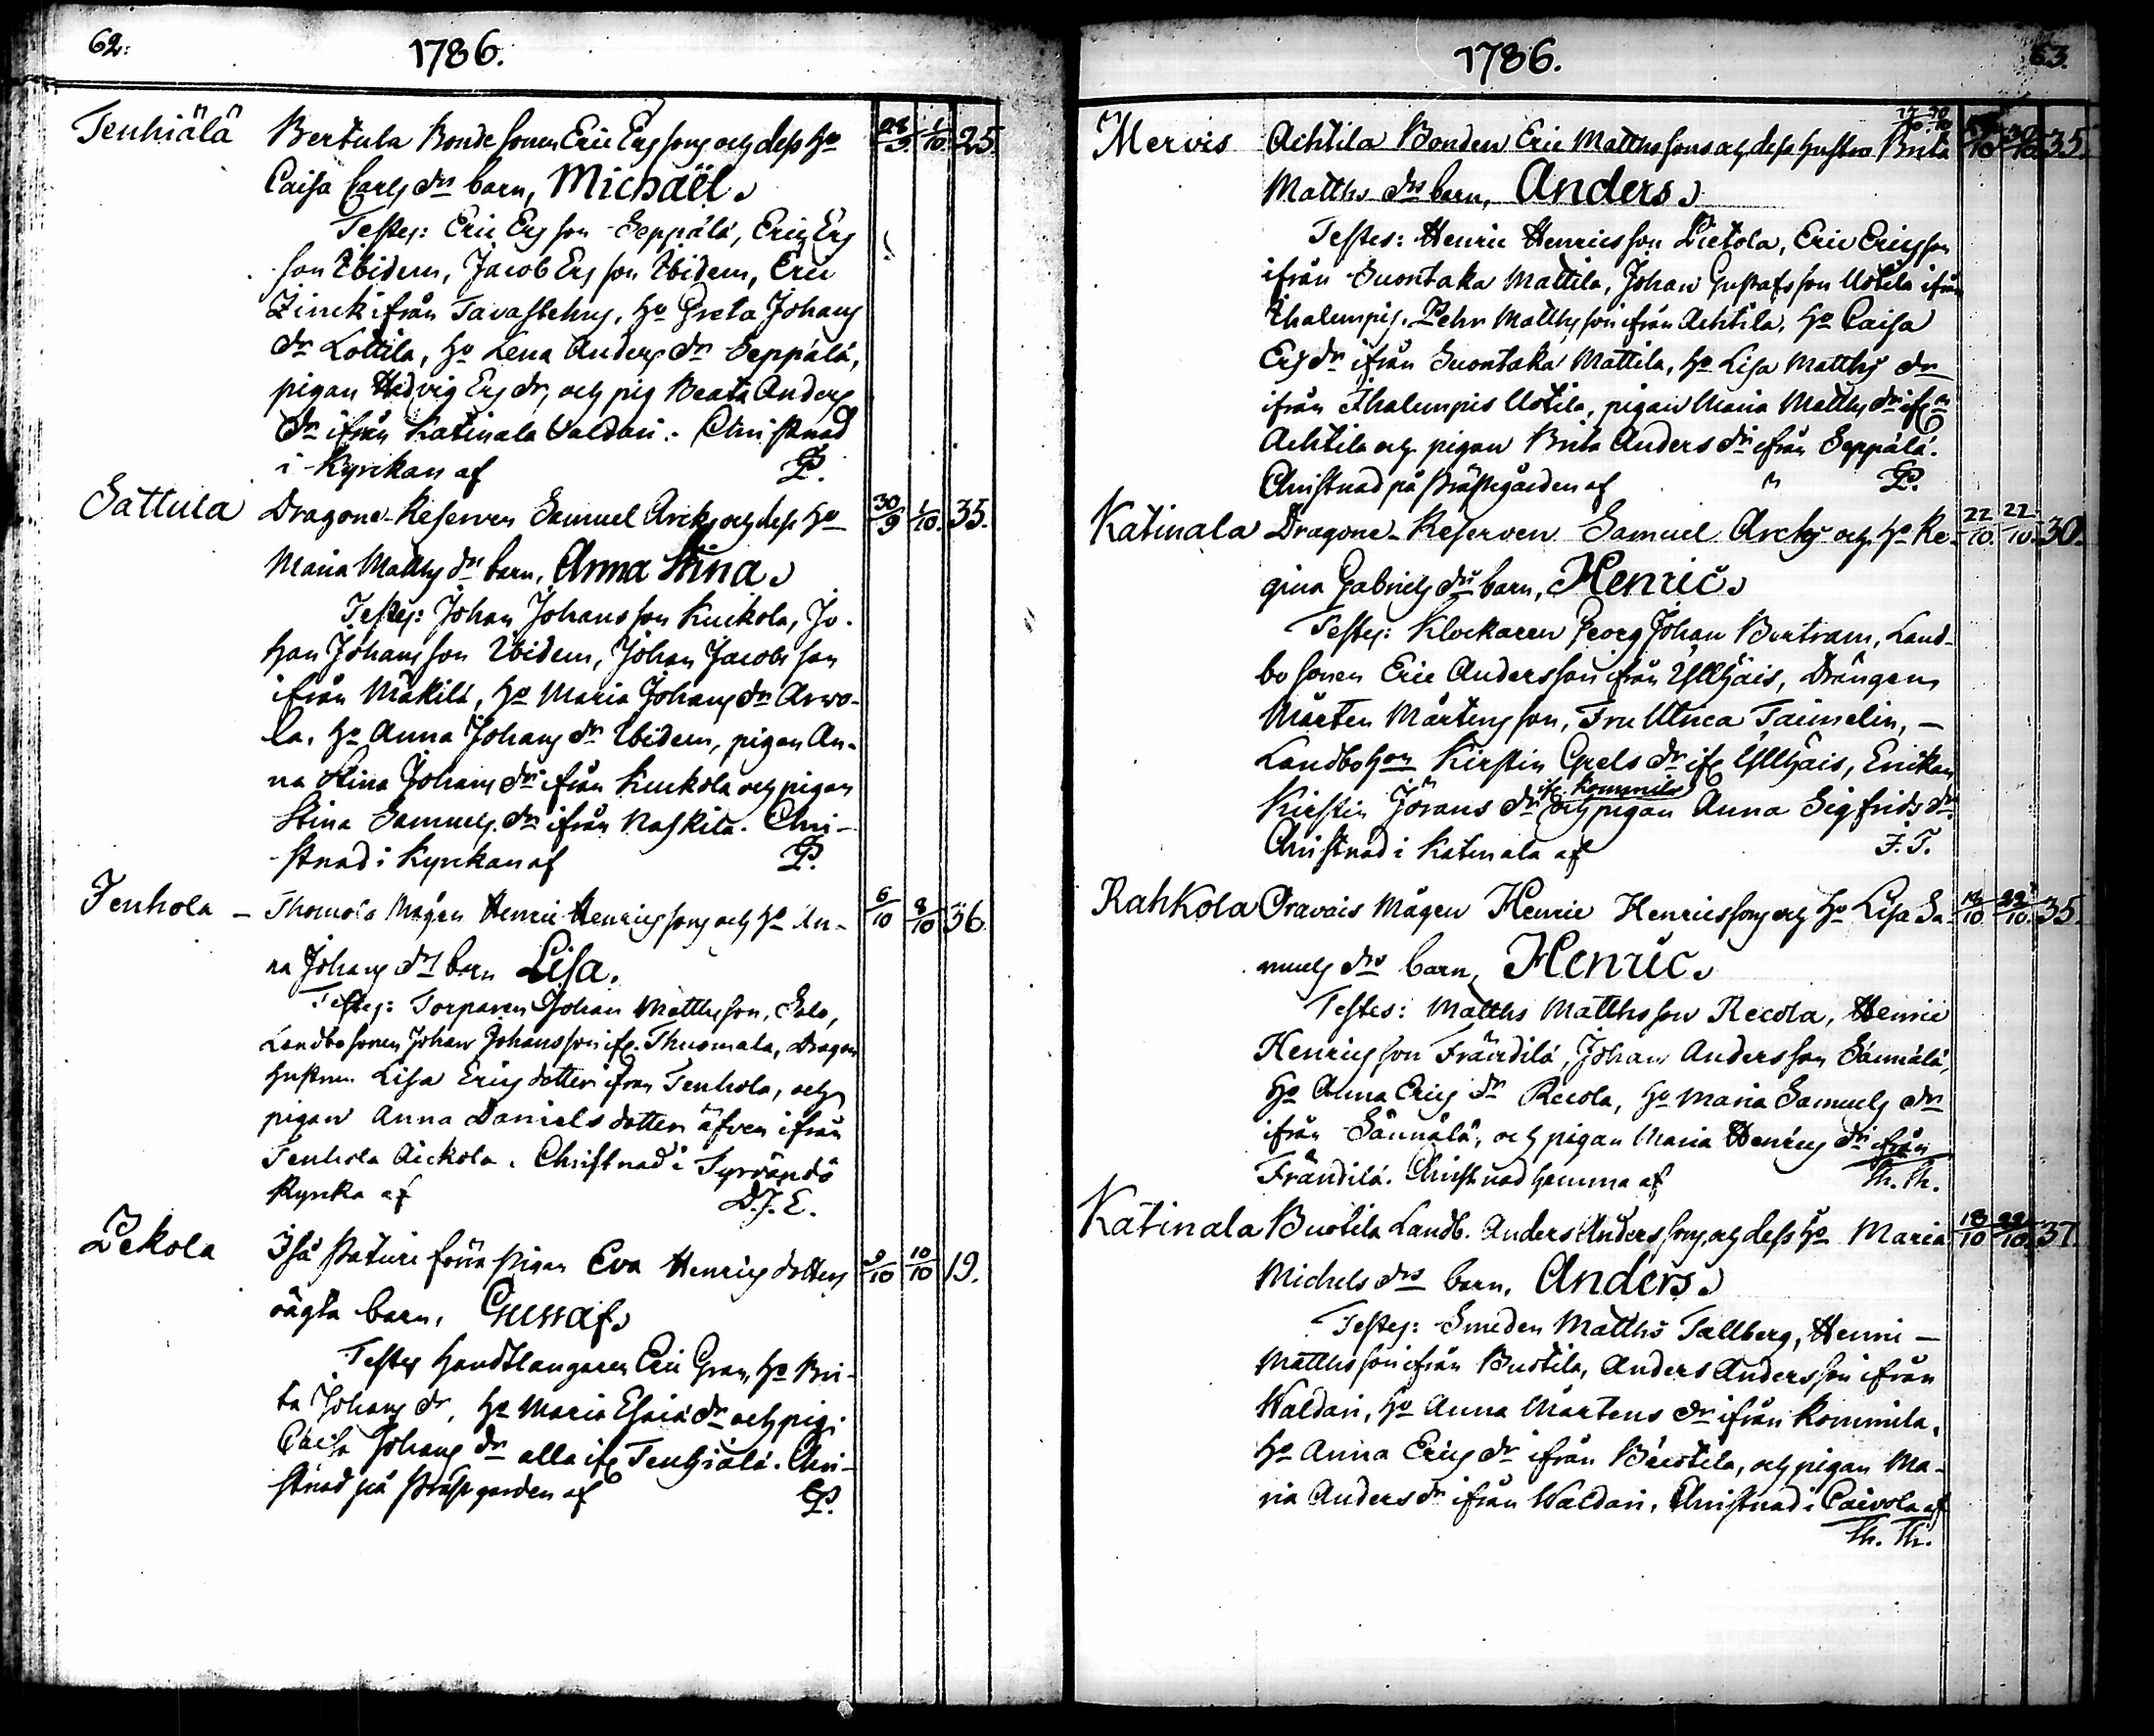 62.
1786.
Tenhiälä Bertula Bonde sonen Eric Erssons och dess Ho 28/9. 1/10. 25.
Caisa Carls drs barn, Michaël.
Testes: Eric Ersson Seppälä, Eric Ers
son Ibidem, Jacob Ersson Ibidem, Eric
Zinck ifrån Tavastehus, Ho Greta Johans
dr Lottila, Ho Lena Anders dr Seppälä,
pigan Hedvig Ers dr, och pig Beata Anders
dr ifrån Katinala Valdari. Christnad
i Kyrckan af P.
Sattula Dragone-Reserven Samuel Arcks och dess Ho 30/9 1/10. 35.
Maria Matths drs barn, Anna Stina.
Testes: Johan Johansson Kuckola, Jo-
han Johansson Ibidem, Johan Jacobsson
ifrån Mäkilä, Ho Maria Johans dr Arvo-
la, Ho Anna Johans dr Ibidem, pigan An-
na Stina Johans dr ifrån Kuckola och pigan
Stina Samuels dr ifrån Naskila. Chri-
stnad i Kyrckan af P.
Tenhola – Thomola Mågen Henric Henricssons och Ho An- 6/10 8/10 36
na Johans drs barn Lisa.
Testes: Torparen Johan Matthsson, Salo,
Landbosonen Johan Johansson ifr. Thuomala, Dragon
hustrun Lisa Erics dotter ifrån Tenhola, och
pigan Anna Daniels dotter äfven ifrån
Tenhola Äickola. Christnad i
Kyrka af D.J.E.
Pekola Ihsä Pature förra pigan Eva Henrics dotters 9/10 10/10 19.
oägta barn, Gustaf.
Testes Handtlangaren Eric Gran, Ho Bri-
ta Johans dr, Ho Maria Esaiä dr och pig.
Caisa Johans dr alla ifr Tenhiälä. Chri-
stnad på Prästgården af P.
1786.
63.
17/10. 20/10
Mervis Achtila Bonden Eric Matthssons och dess hustru Brita 35.
Matths drs barn, Anders.
Testes: Henric Henricsson Pietola, Eric Ericsson
ifrån Suontaka Mattila, Johan Gustafsson Uotila ifrån
Ihalempis, Pehr Matthsson ifrån Achtila, Ho Caisa
Ers dr ifrån Suontaka Mattila, Ho Lisa Matths dr
ifrån Ihalempis Uotila, pigan Maria Matths dr ifrn
Achtila och pigan Brita Anders dr ifrån Seppälä.
Christnad på Prästegården af P.
Katinala Dragone-Reserven Samuel Arcks och Ho Re- 22/10. 22/10. 30.
gina Gabriels drs barn, Henric.
Testes: Klockaren Georg Johan Bertram, Land-
bo sonen Eric Andersson ifrån Yllhäis, Drängen
Mårten Mårtensson, Fru Ulrica Taimelin, –
Landbo Hon Kirstin Grels dr ifr Yllhäis, Enckan
ifr. Kommila
Kirstin Jörans dr och pigan Anna Sigfrids dr
Christnad i Katinala af F.T.
Rahkola Oravais Mågen Henric Henricssons och Ho Lisa Sa- 19/10 22/10. 35.
muels drs barn, Henric.
Testes: Matths Matthsson Recola, Henric
Henricsson Frändilä, Johan Andersson Sännälä,
Ho Anna Erics dr Recola, Ho Maria Samuels dr
ifrån Sännälä, och pigan Maria Henrics dr ifrån
Frändilä. Christnad hemma af Th. Th.
Katinala Buotila Landb. Anders Anderssons, och dess Ho Maria 18/10 22/10. 37.
Michels drs barn, Anders.
Testes: Smeden Matths Tallberg, Henric –
Matthsson ifrån Buotila, Anders Andersson ifrån
Waldari, Ho Anna Mårtens dr ifrån Kommila,
Ho Anna Erics dr ifrån Buotila, och pigan Ma-
ria Anders dr ifrån Waldari, Christnad i Caivola af
Th. Th.